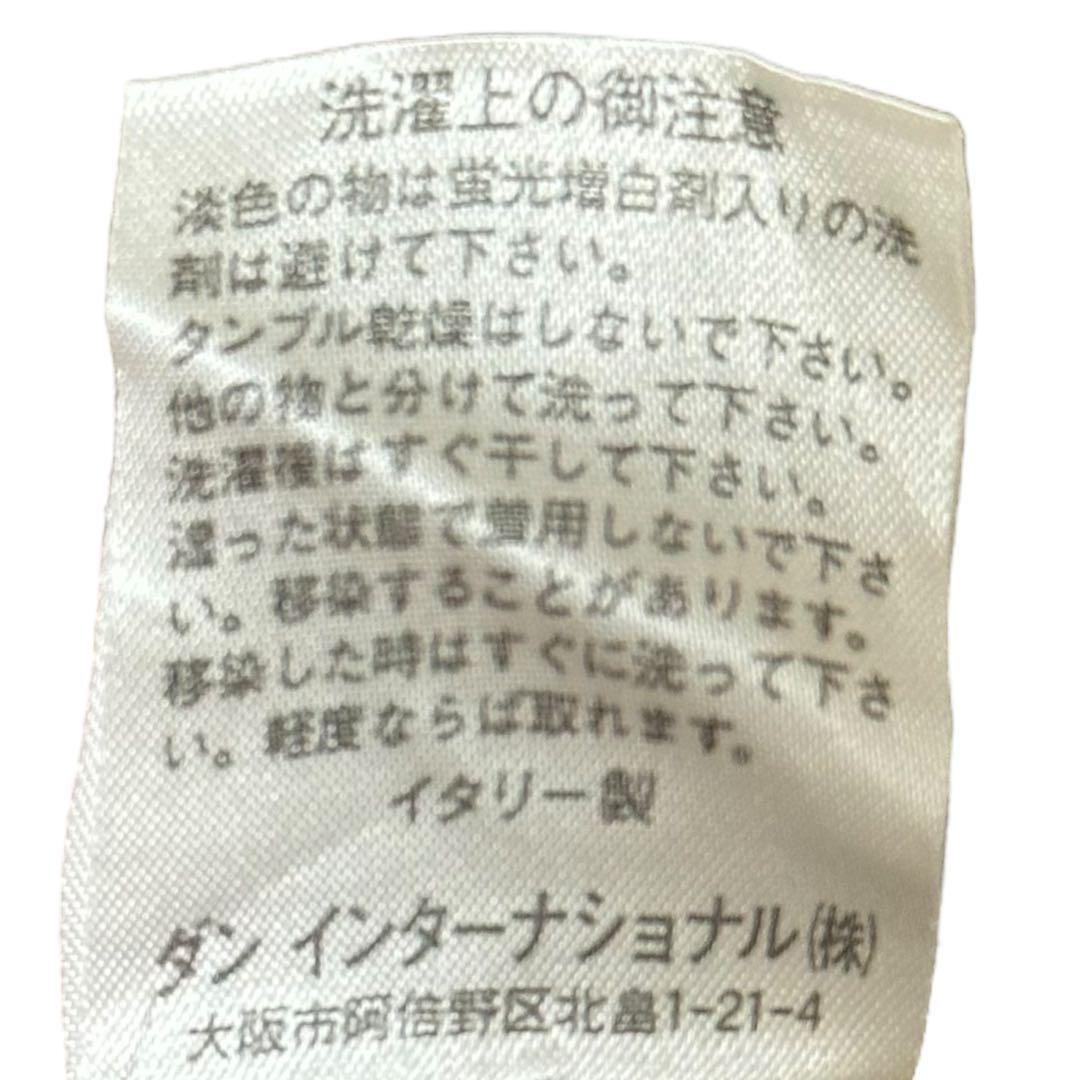 洗濯上の御注意
淡色の物は蛍光増白剤入りの洗
剤は避けて下さい。
タンブル乾燥はしないで下さい。
他の物と分けて洗って下さい。
洗濯後はすぐ干して下さい。
湿った状態で着用しないで下さ
い。移染することがあります。
移染した時はすぐに洗って下さ
い。軽度ならば取れます。
イタリー製
ダン インターナショナル(株)
大阪市阿倍野区北畠1-21-4